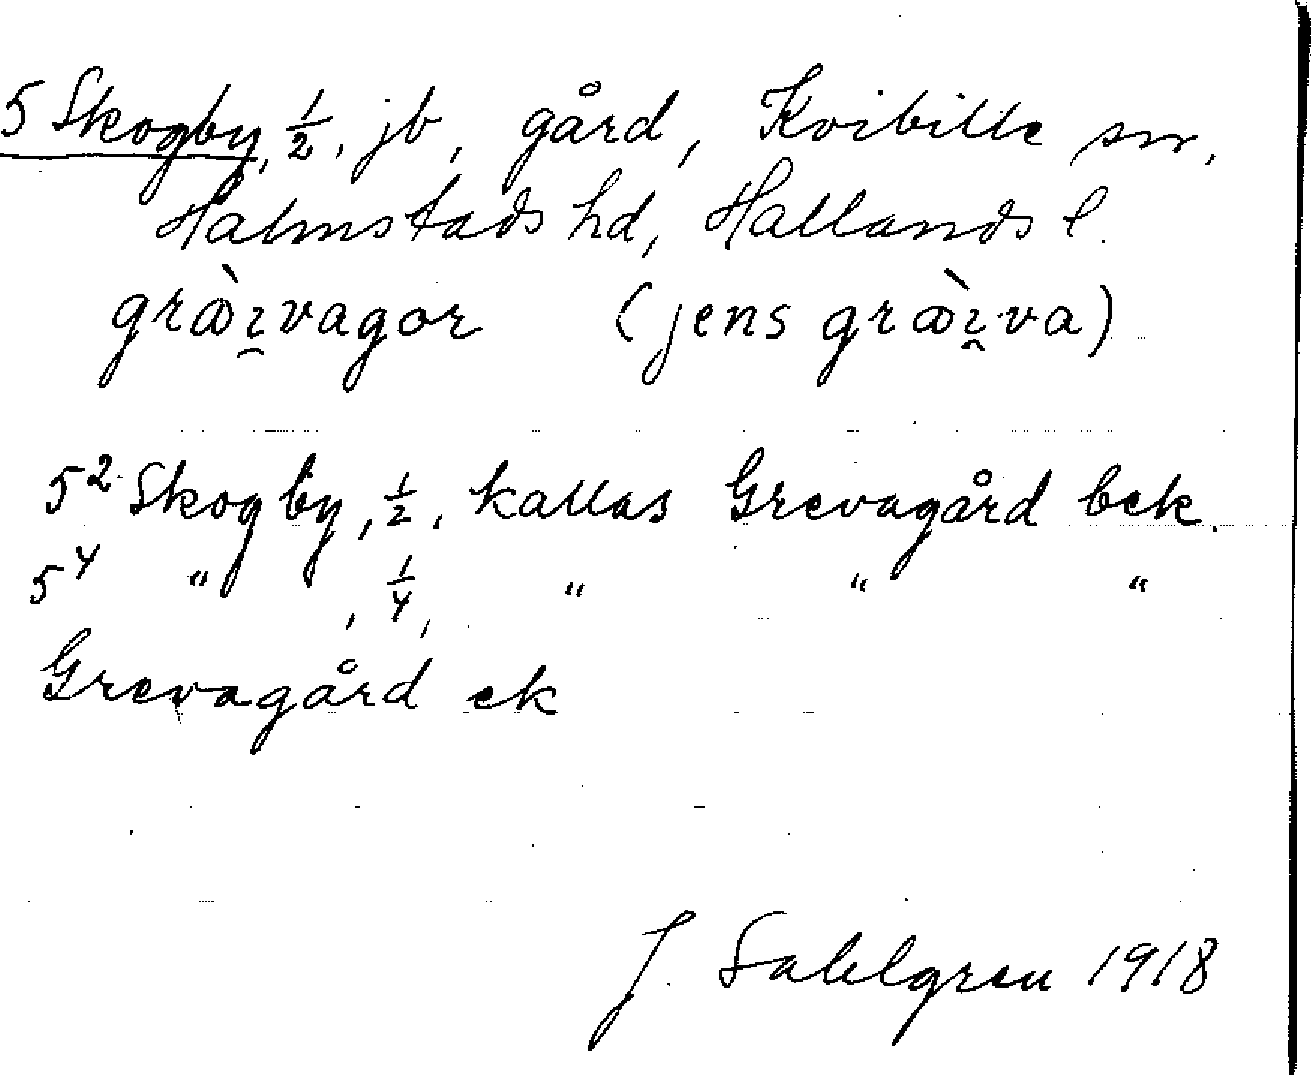 5 Skogby, 1/2, jb, gård, Kvibille sn,
Halmstads hd, Hallands l.
græ̀ı̯vagor (jens græ̀ı̯va)
5² Skogby, 1/2, kallas Grevagård bek.
5⁴ " , 1/4, " " "
Grevagård ek
J. Sahlgren 1918